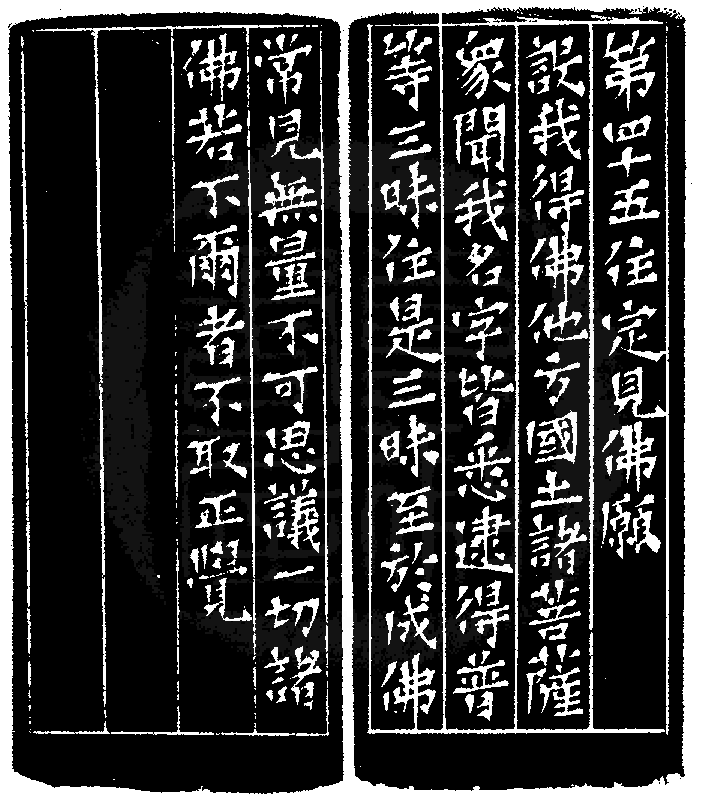 第四十五住定見佛願
設我得佛他方國土諸菩薩
衆聞我名字皆悉逮得普
等三昧住是三昧至於成佛
常見無量不可思議一切諸
佛若不爾者不取正覺